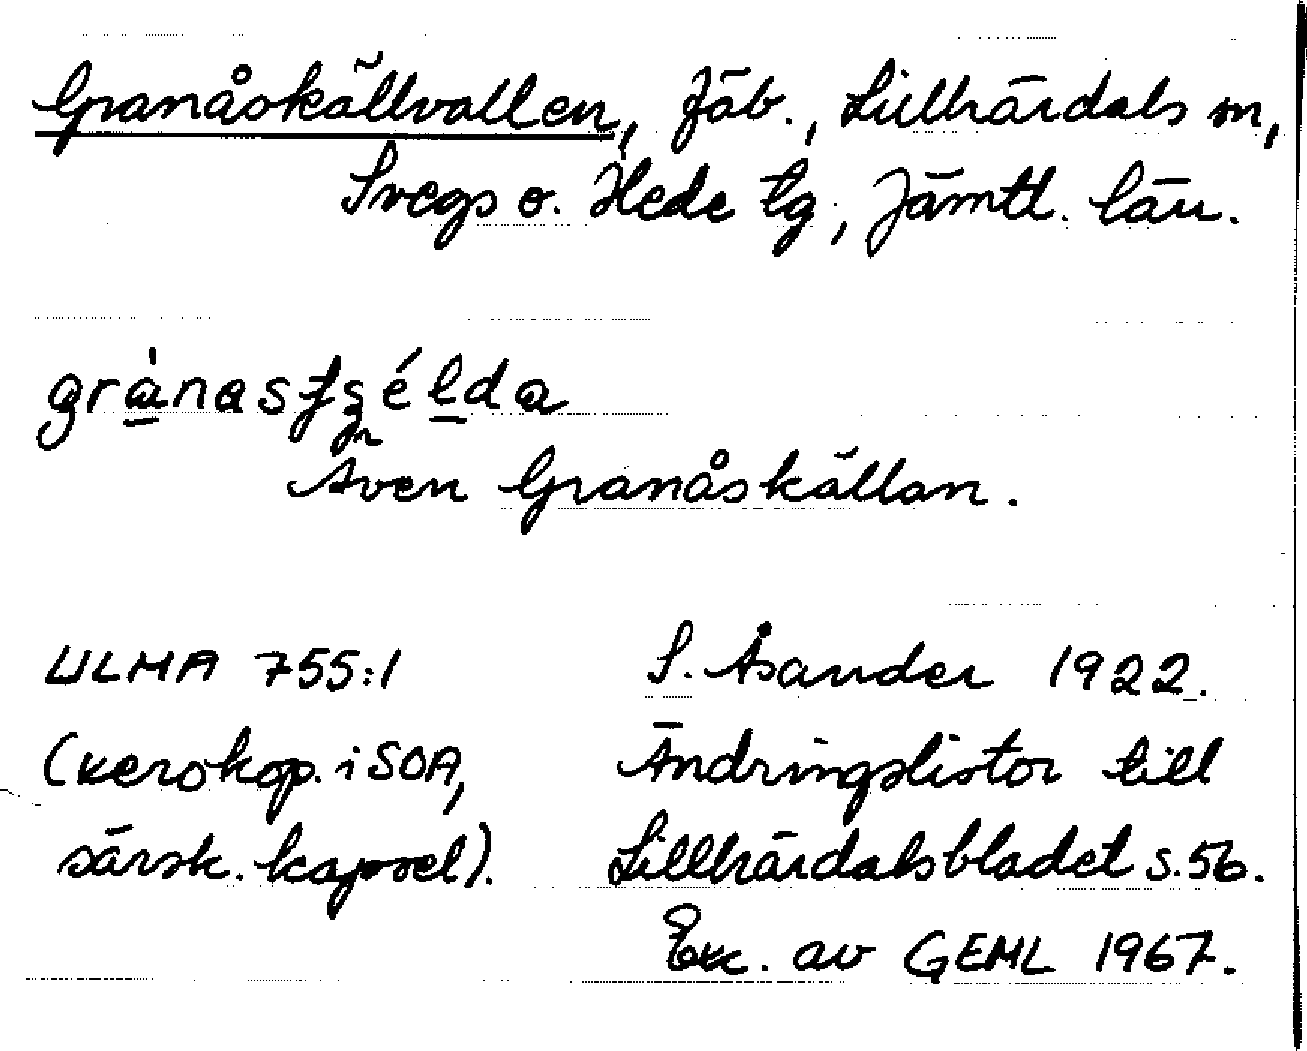 Granåskällvallen, fäb., Lillhärdals sn,
Svegs o. Hede tg, Jämtl. län.
Även Granåskällan.
ULMA 755:1
(xerokop. i SOA,
särsk. kapsel).
S. Åsander 1922.
Ändringslistor till
Lillhärdalsbladet s. 56.
Exc. av GEML 1967.